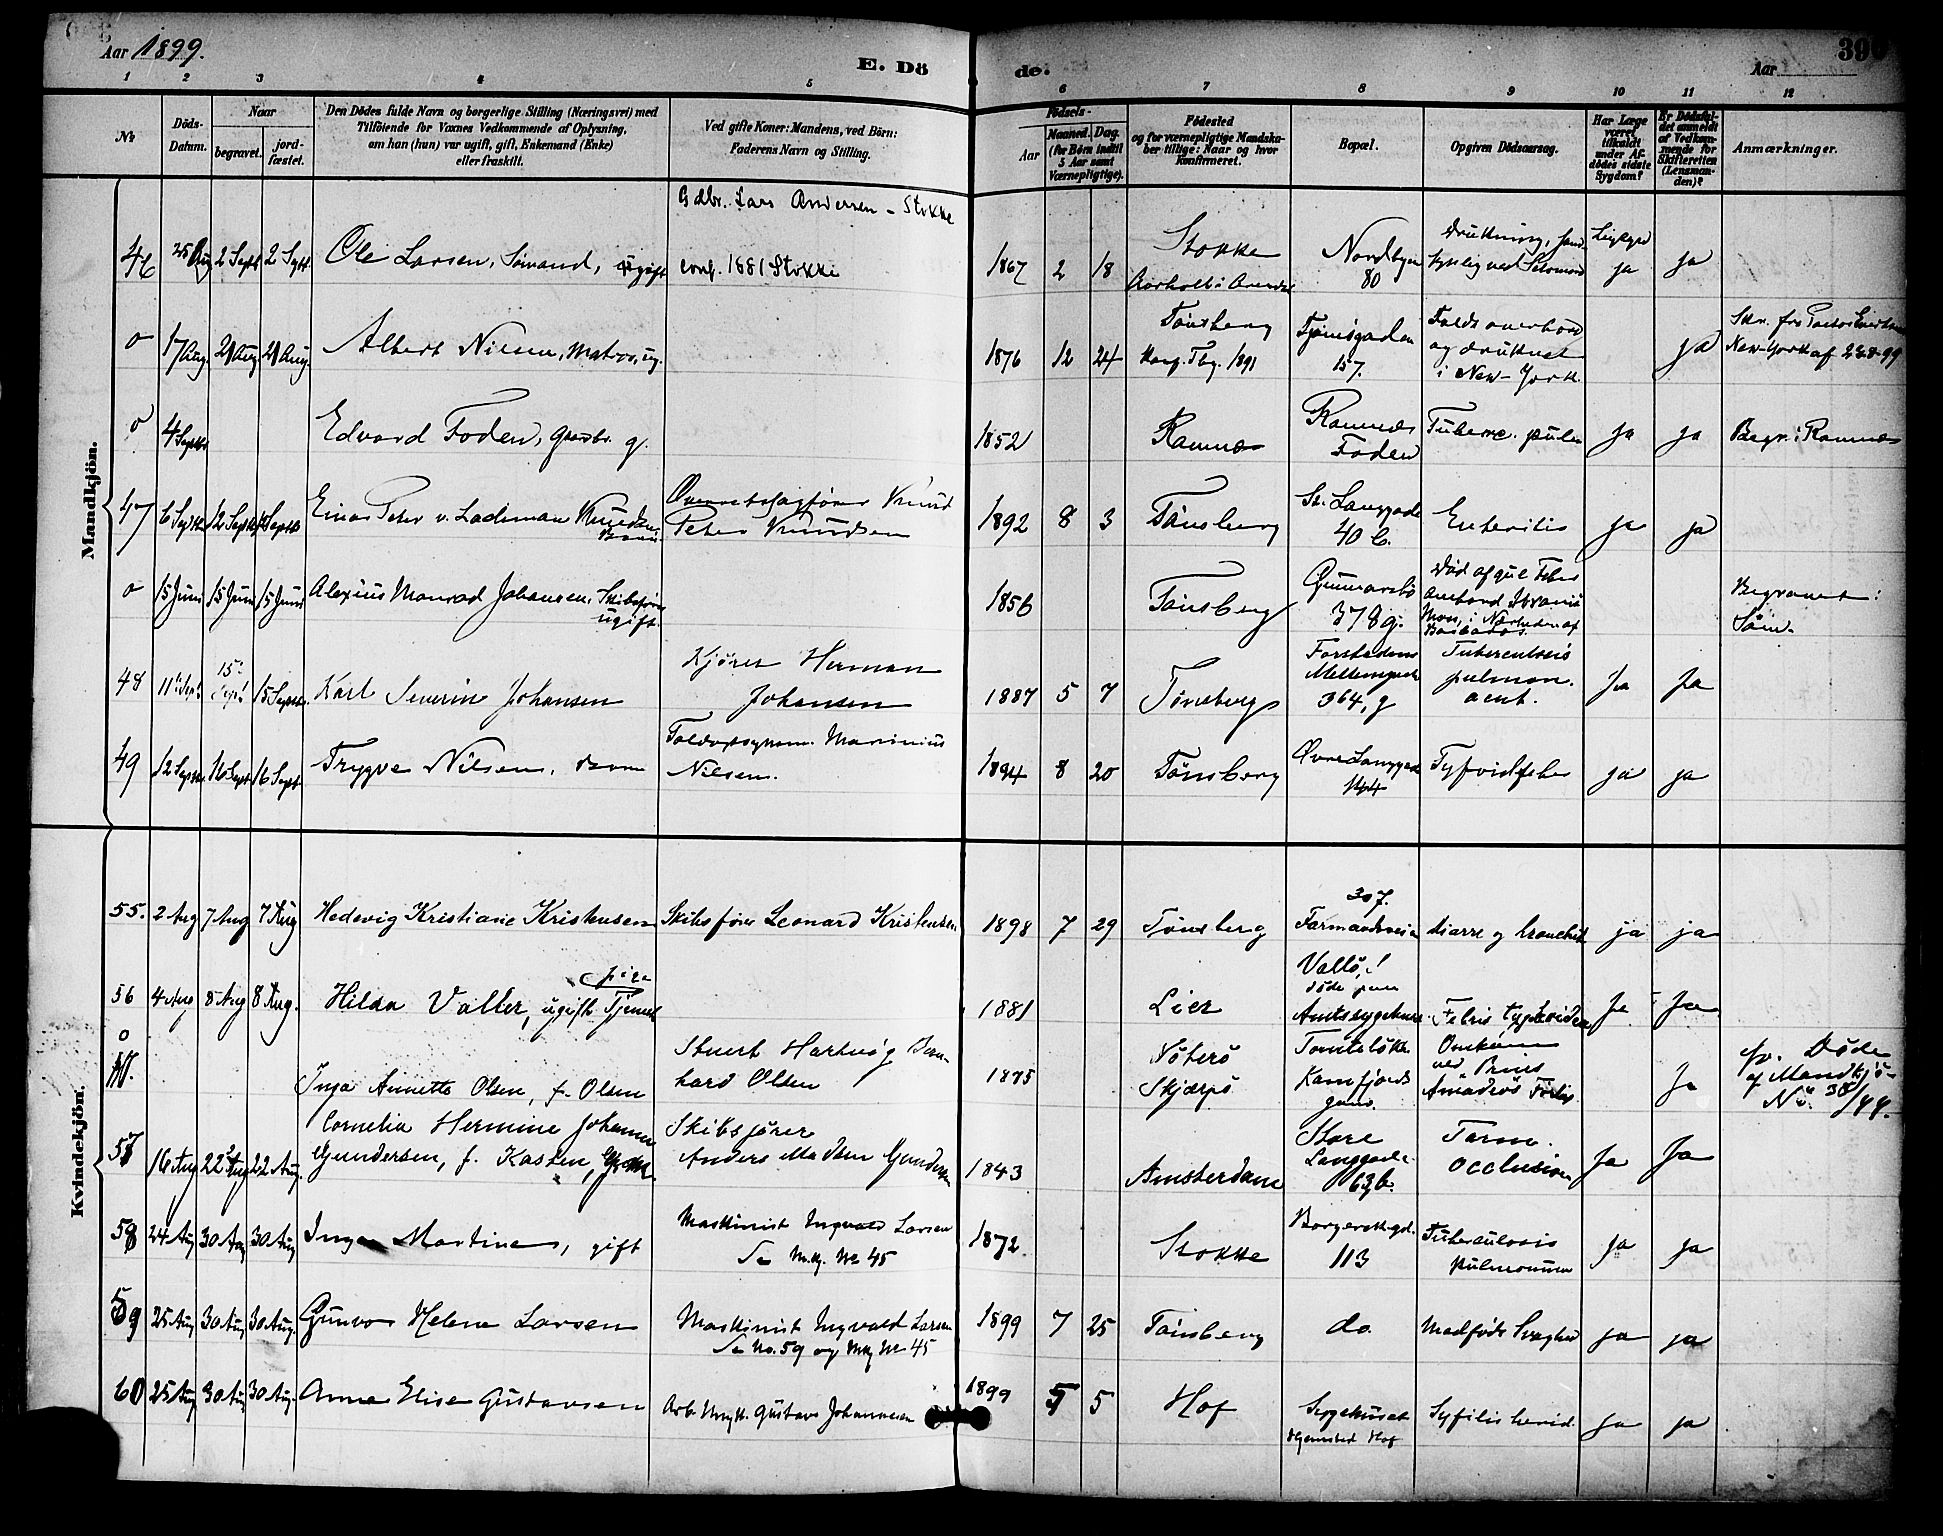 Aar 1899.
E. Dö
de.
Aar
390
1 2 3 4 5 6 7 8 9 10 11 12
No
Döds-Datum.
Naar
begravet.
jord-fæstet.
Den Dödes fulde Navn og borgerlige Stilling (Næringsvei) med
Tilföiende for Voxnes Vedkommende af Oplysning,
om han (hun) var ugift, gift, Enkemand (Enke)
eller fraskilt.
Ved gifte Koner: Mandens, ved Börn:
Faderens Navn og Stilling.
Födsels-
Aar
Maaned. Dag.
(for Börn indtil
5 Aar samt
Værnepligtige).
Födested
og for værnepligtige Mandska-
ber tillige: Naar og hvor
konfirmeret.
Bopæl.
Opgiven Dödsaarsag.
Har Læge
været
tilkaldt
under Af-
dödes sidste
Sygdom?
Er Dödsfal-
det anmeldt
af Vedkom-
mende for
Skifteretten
(Lensman-
den)?
Anmærkninger.
Mandkjön.
Gdbr. Lars Andersen - Stokke
46 25 Aug 2 Sept 2 Sept. Ole Larsen, Sömand, ugift conf. 1881 Stokke 1867 2 18 Stokke Nordbyen 80 Drukning, ja ja
o 17 Aug 21 Aug 21 Aug. Albert Nilsen, Matros, ug. 1876 12 24 Tönsberg Konf. Tbg. 1891 Tjömegaden 157. Faldt overbord
og druknet
i New-York. ja New-York af 22-8-99
o 4 Septbr Edvard Foden, Gaardbr. g. 1852 Ramnes Ramnes
Foden Tuberc. pulm ja ja Begr. i Ramnes
47 6 Septbr 12 Septbr 12 Septbr Einar Peter v. Lademan Knudsen Barn Overretssagförer Knud
Peter Knudsen 1892 8 3 Tönsberg St. Langgade
40 b. Enteritis ja ja
o 15 Juni 15 Juni 15 Juni Alexius Monrad Johansen, Skibsförer
ugift. 1856 Tönsberg Gunnarsbö
378 g. Död af gul Feber
ombord
i Nærheden af
Barbados. Begravet i
Söen.
48 11te Sept. 15de Sept. 15 Septbr. Karl Severin Johansen Kjörer Herman
Johansen 1887 5 7 Tönsberg Forstadens
Mellemgade
364, g Tuberculosis
pulmon.
acut. Ja Ja
49 12 Septbr. 16 Sept 16 Sept. Trygve Nilsen, Barn Toldopsynsm. Marinius
Nilsen. 1894 8 20 Tönsberg Övre Langgade
144 Tyfoidfeber ja ja
Kvindekjön.
55. 2 Aug 7 Aug 7 Aug Hedevig Kristiane Kristensen Skibsförer Leonard Kristensen 1898 7 29 Tönsberg 307.
Farmandsveien diarre og bronchit ja ja
56 4 Aug 8 Aug 8 Aug. Hilda Valler, ugift Tjenestepige 1881 Lier Vallö, !
döde paa
Amtssygehuset. Febris typhoidea Ja Ja
o Inga Annette Olsen, f. Olsen Stuert Hartvig Bern-
hard Olsen 1875 Nöterö
Skjærpö Kamfjord Omkommen
ved "Prins
Amadeos" Forlis. Ja cfr. Döde
af Mandkjön
No. 38/44.
57 16 Aug 22 Aug 22 Aug. Cornelia Hermine Johanna
Gundersen, f. Kasten, Skibsförer
Anders Madsen Gundersen 1843 Amsterdam Store
Langgade
63b. Tarm-
occlusion Ja Ja
58 24 Aug 30 Aug 30 Aug Inga Martine, gift Maskinist Ingvald Larsen
Se M.kj. No 45 1872. Stokke
113 Tuberculosis
pulmonum ja ja
59 25 Aug 30 Aug 30 Aug. Gunvor Helene Larsen Maskinist Ingvald Larsen
Se No. 59 og Mkj No 45 1899 7 25 Tönsberg do. Medfödt Svaghed ja ja
60 25 Aug 30 Aug 30 Aug. Anne Elise Gustavsen Arb. Gustav Johannesen 1899 5 5 Hof Sygehuset
Hjemsted Hof Syfilis hered. ja ja